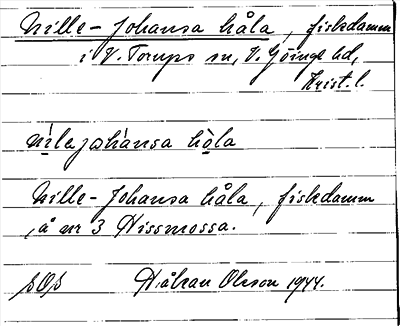 Nille-Johansa håla, fiskdamm
i V. Torups sn, V. Göinge hd,
Krist. l.
nìlejohànsa hò̡la
Nille-Johansa håla, fiskdamm
, å nr 3 Hissmossa.
sOs Håkan Olsson 1944.